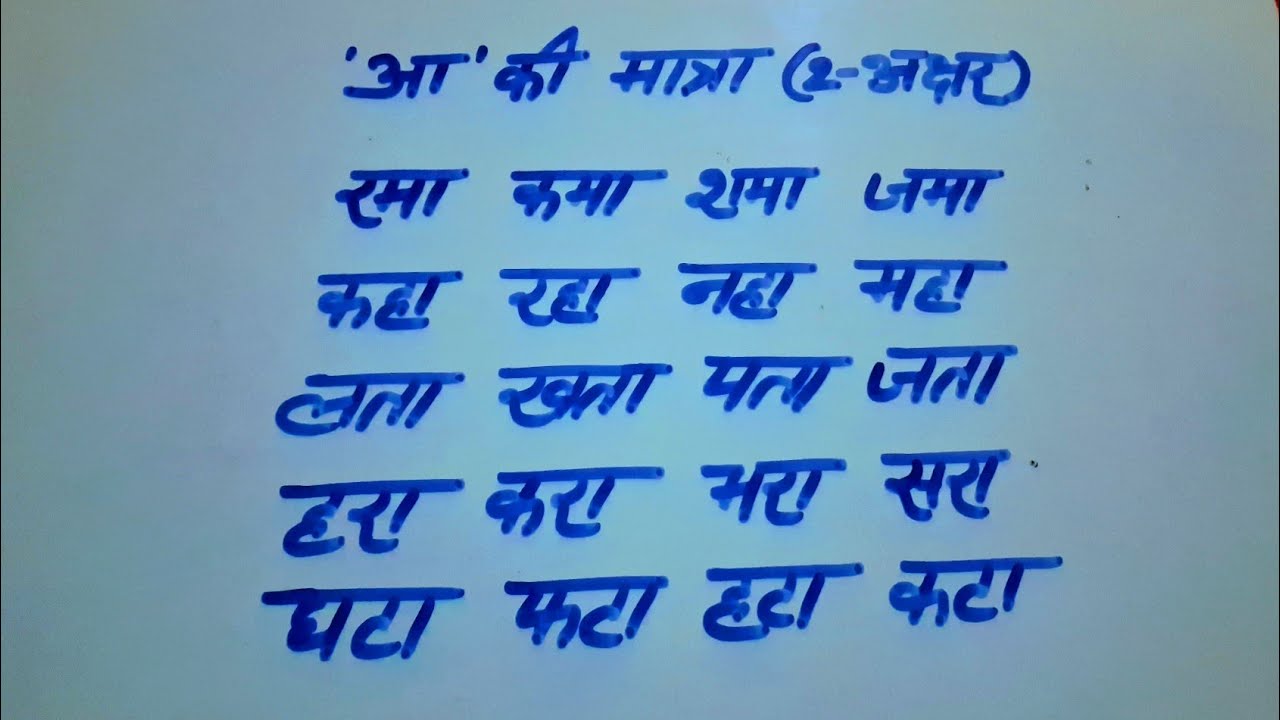 'आ' की मात्रा (2-अक्षर)
रमा कमा शमा जमा
कहा रहा नहा महा
लता खता पता जता
हरा करा भरा सरा
घटा फटा हटा कटा